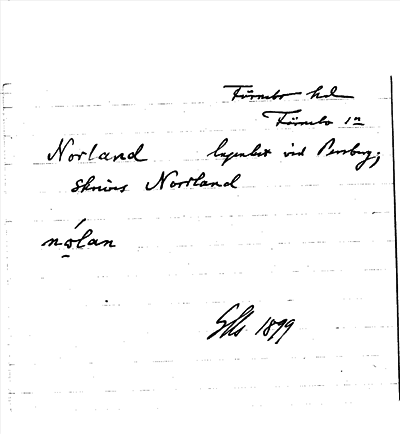 Färnebo hd
Färnebo sn
Norland lägenhet vid Persberg;
skrives Norrland
nǫ́lan
1899